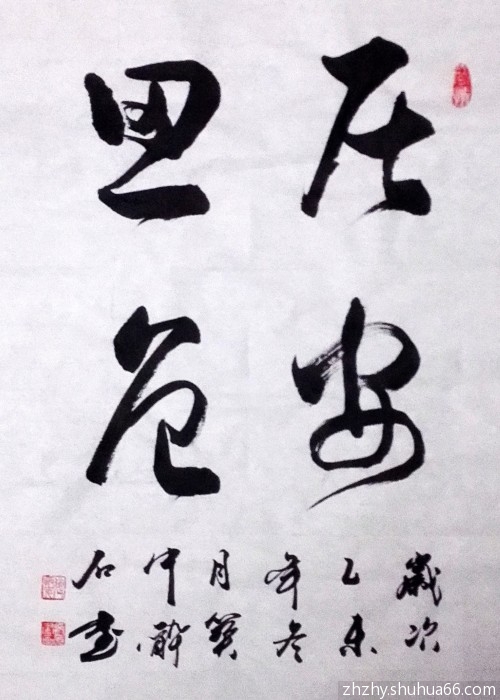 居安
思危
歲次
乙未
年冬
月
中醉
石書
zhzhy.shuhua66.com